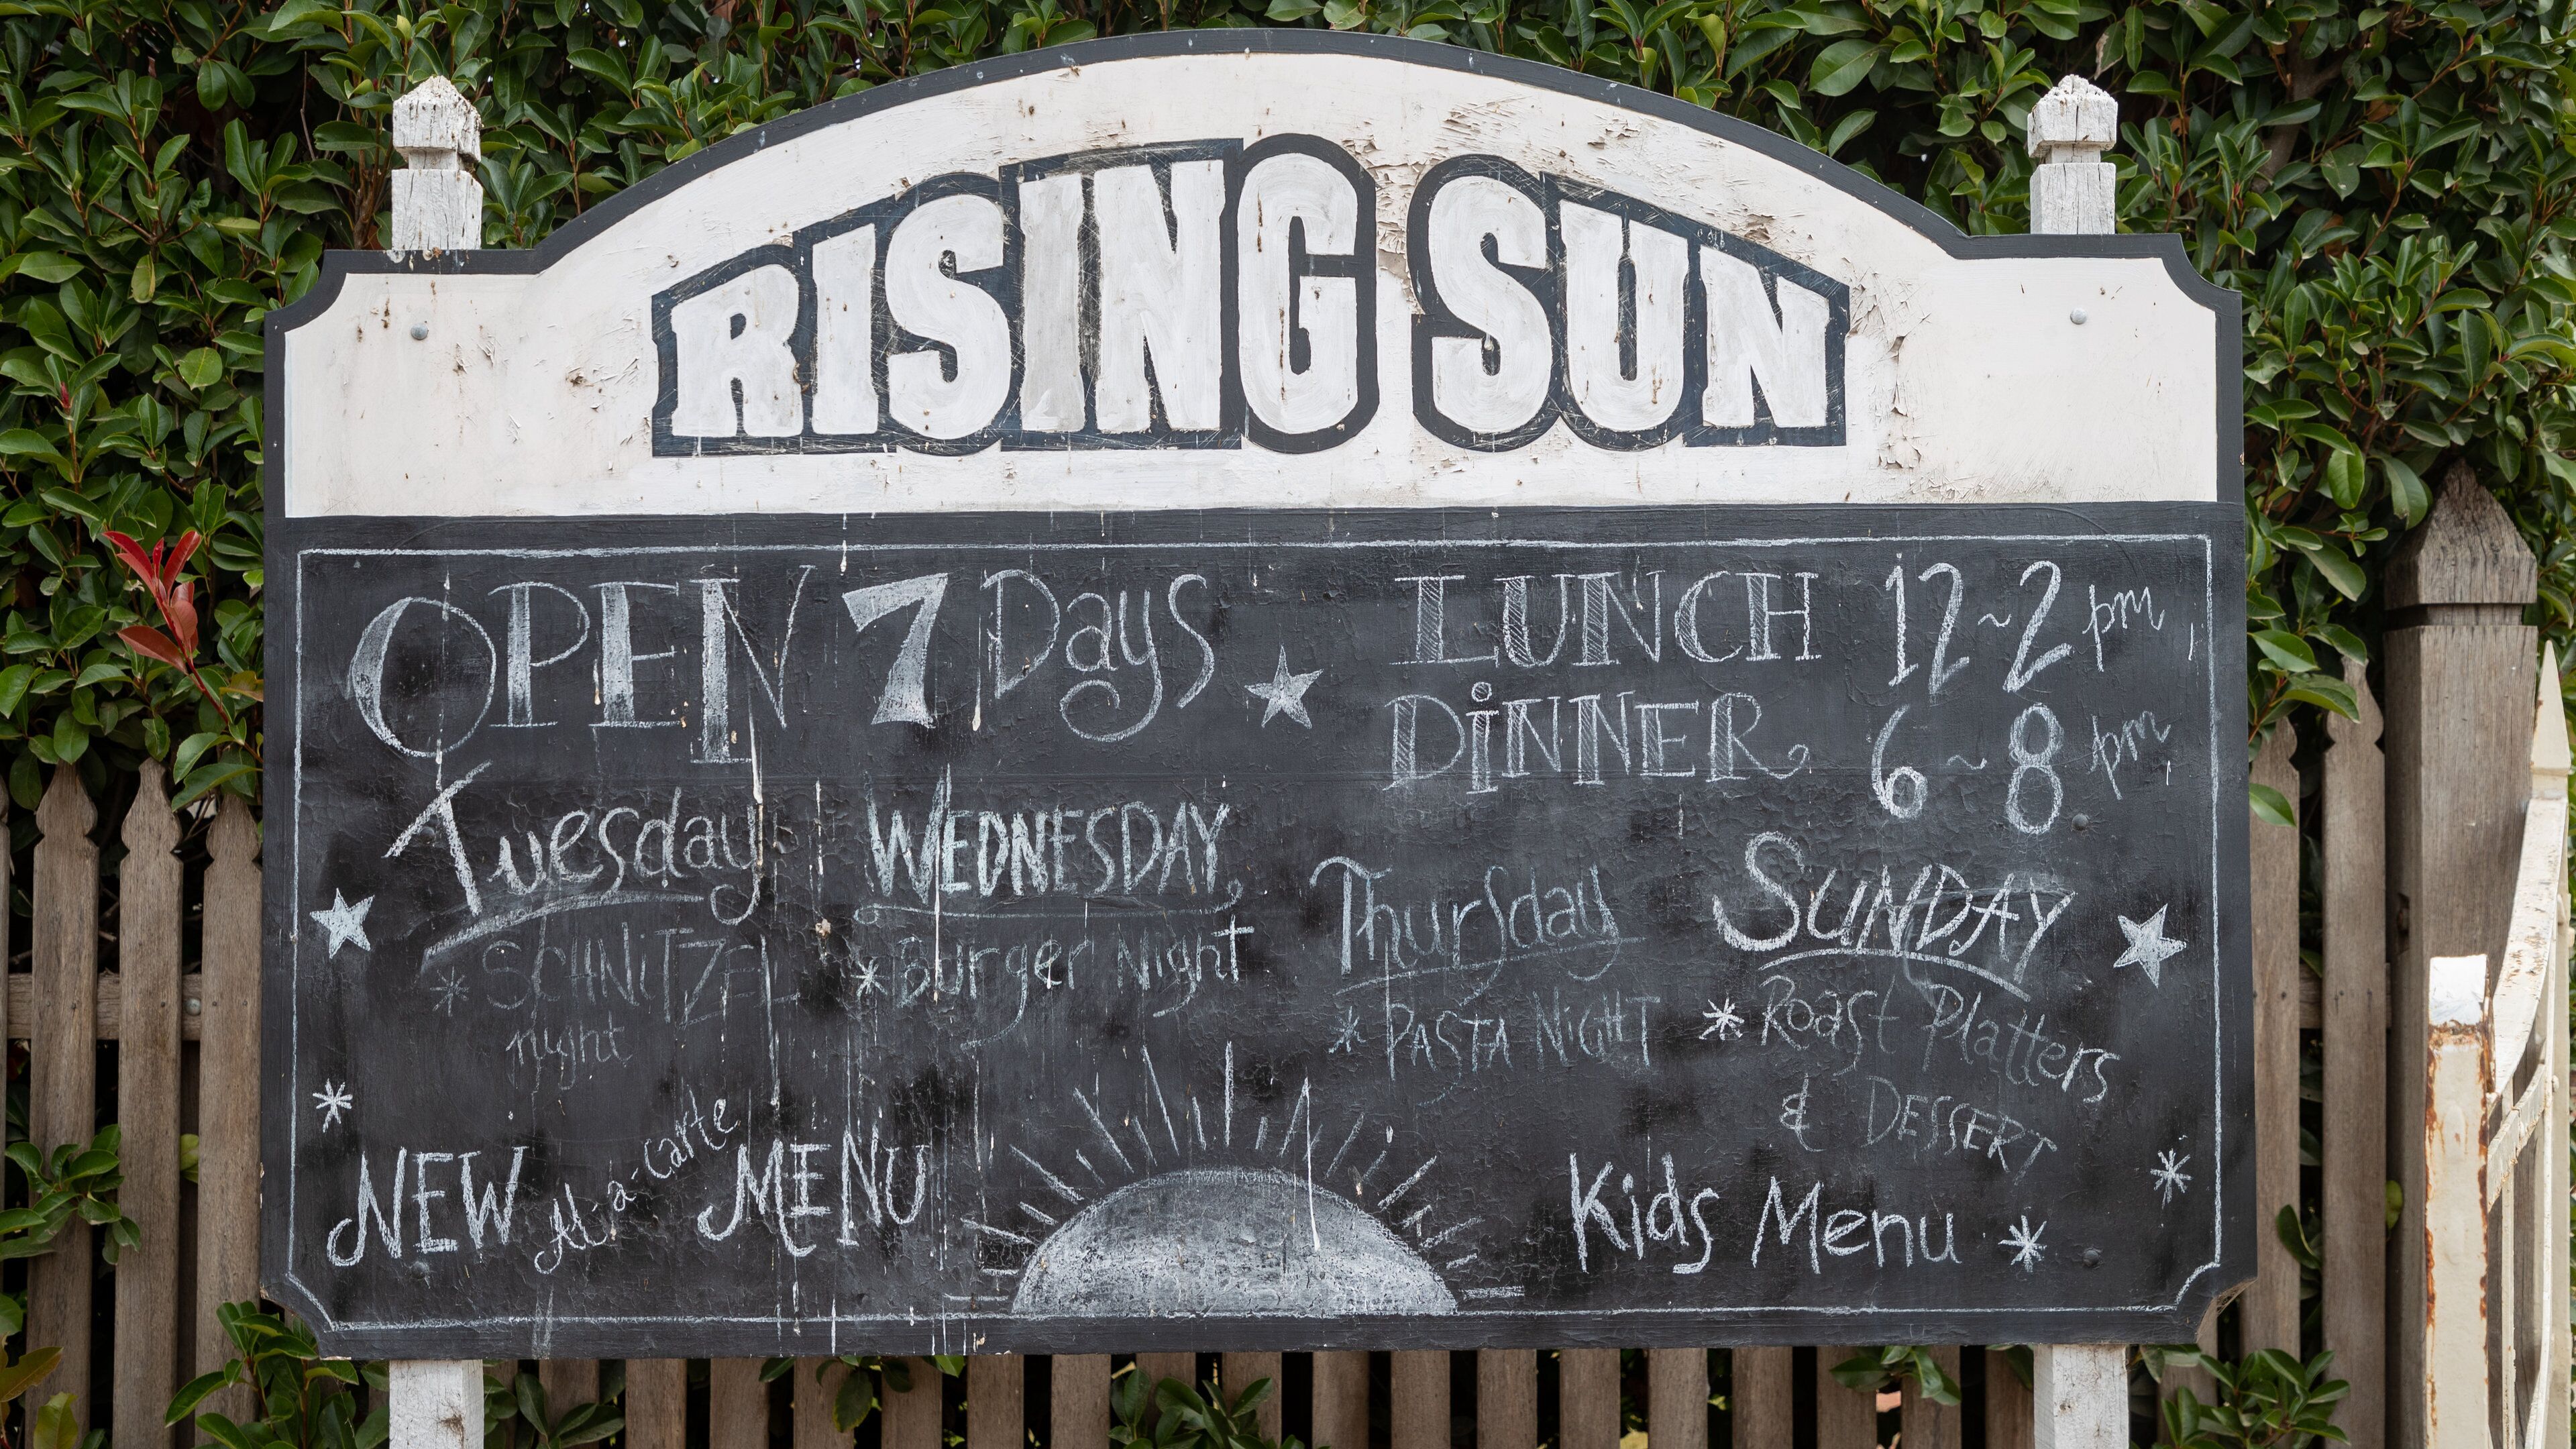 RISING SUN
OPEN 7 Days
LUNCH 12~2 pm
DiNNER 6~8 pm
Tuesday
* SCHNiTZEL
night
WEDNESDAY
* Burger Night
Thursday
* PASTA NIGHT
SUNDAY
* Roast Platters
& DESSERT
NEW Al-a-Carte MENU
Kids Menu *